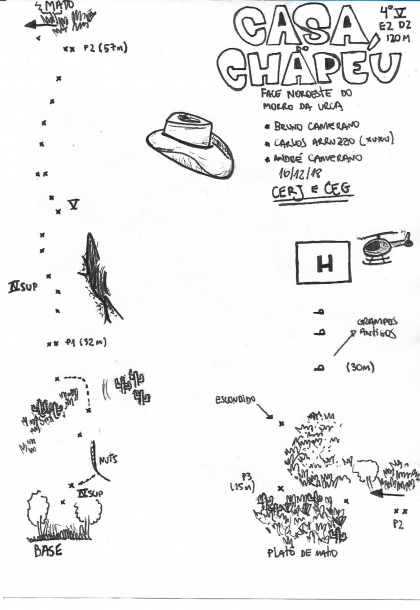 MATO
P2 (57m)
V
IVSUP
P1 (32m)
NUTS
IVSUP
BASE
CASA
DO
CHAPÉU
4º V
E2 D2
120M
FACE NOROESTE DO
MORRO DA URCA
BRUNO CAMERANO
CARLOS ARRUZZO (XUXU)
ANDRÉ CAMERANO
16/12/18
CERJ E CEG
H
GRAMPOS
ANTIGOS
(30m)
ESCONDIDO
P3
(15m)
P2
PLATÔ DE MATO